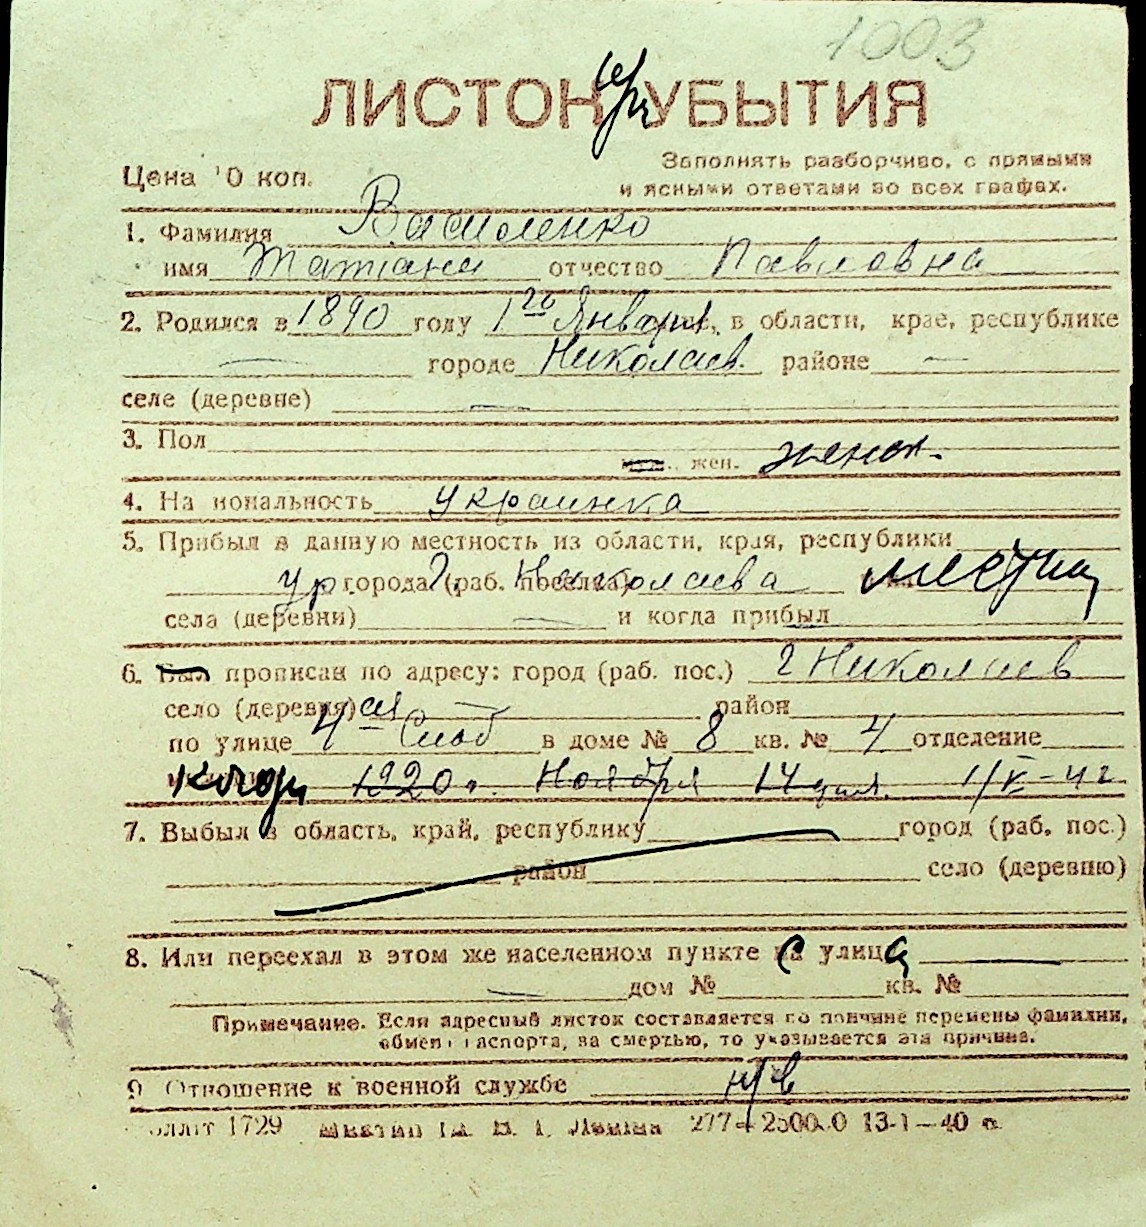 1003
ЛИСТОК УБЫТИЯ
Цена 10 коп.
Заполнять разборчиво, с прямыми
и ясными ответами во всех графах.
1. Фамилия Василенко
имя Татіана отчество Павловна
2. Родился в 1890 году 1го Января, в области, крае, республике
— городе Николаев районе —
селе (деревне) —
3. Пол
муж., жен. женск.
4. Национальность украинка
5. Прибыл в данную местность из области, края, республики
ур. города (раб. поселка) г. Николаева местная
села (деревни) — и когда прибыл
6. Был прописан по адресу: город (раб. пос.) г Николаев
село (деревня) — район
по улице 4ая Слоб в доме № 8 кв. № 4 отделение
1920 г. Ноября 14 дня.
7. Выбыл в область, край, республику город (раб. пос.)
район село (деревню)
8. Или переехал в этом же населенном пункте с улица —
— дом № кв. №
Примечание. Если адресный листок составляется по причине перемены фамилии,
обмена паспорта, за смертью, то указывается эта причина.
9 Отношение к военной службе н/в
1729 Леніна 277 13-1-40